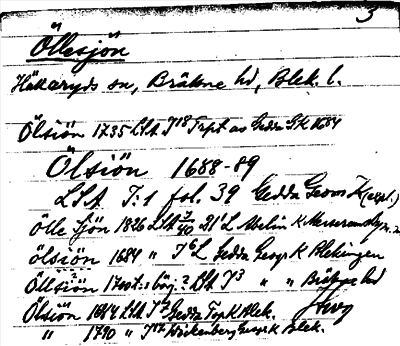 3
Öllesjön
Hällaryds sn, Bräkne hd, Blek. l.
Ölsiön 1735 LSA I 18 Tapt av Gedda GK 1684
Ölsiön 1688-89
LSA I:1 fol. 39 Gedda Geom K
Ölle sjön 1826 LSA 7/40 Bl L Abelin K
ölsiön 1684 " I 6 L Gedda Geogr K Blekingen
Öllsiön LSA I 3 " " Bräkne hd
Ölsiön 1684 LSA I Gedda Top K Blek.
" 1790 " I Wickenberg Geogr K Blek.